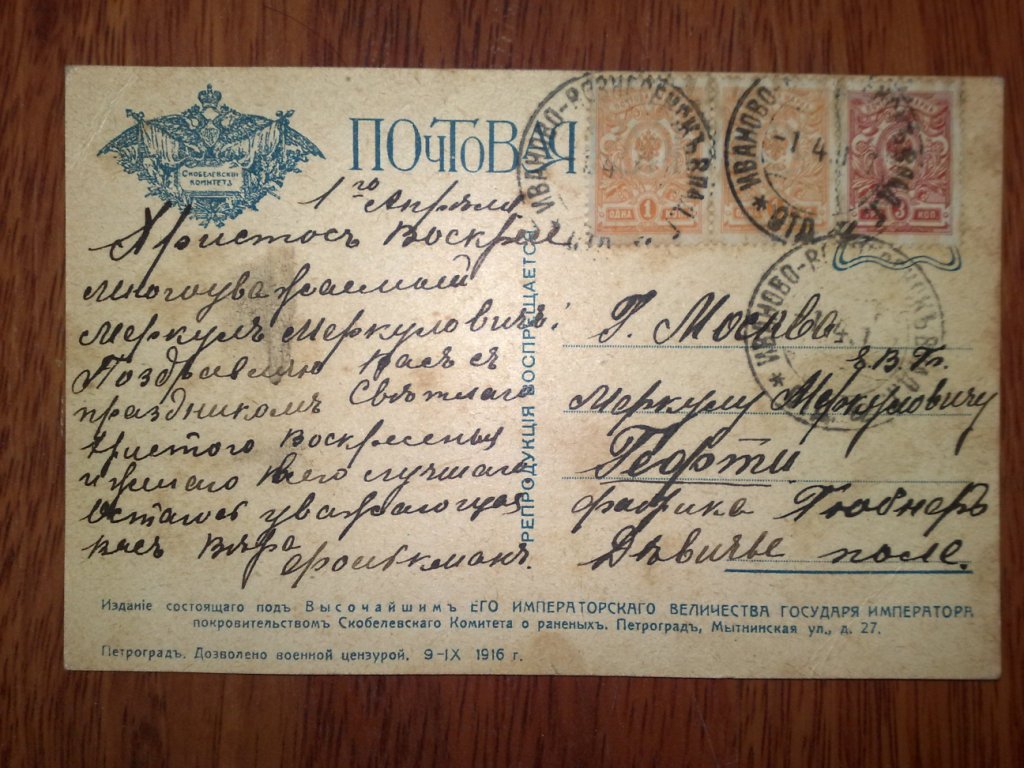 Скобелевскій
Комитетъ
ПОчТОВАЯ
ИВАНОВО-ВОЗНЕСЕНСКЪ ВЛАД.
ИВАНОВО-
ОТД.
-1 4
ОДНА 1
3 КОП
ИВАНОВО-ВОЗНЕСЕНСКЪ
1го Апрѣля
Христосъ Воскресе
многоуважаемый
Меркулъ Меркуловичъ!
Поздравляю Васъ съ
праздникомъ Свѣтлаго
Христого Воскресенья
и желаю всего лучшаго
Остаюсь уважающая
васъ Вѣра
РЕПРОДУКЦІЯ ВОСПРЕЩАЕТСЯ
Г. Москва
Меркулу Меркуловичу
Гефрти
фабрика Гюбнеръ
Дѣвичье поле.
Изданіе состоящаго подъ Высочайшимъ ЕГО ИМПЕРАТОРСКАГО ВЕЛИЧЕСТВА ГОСУДАРЯ ИМПЕРАТОРА
покровительствомъ Скобелевскаго Комитета о раненыхъ. Петроградъ, Мытнинская ул., д. 27.
Петроградъ. Дозволено военной цензурой. 9-IX 1916 г.